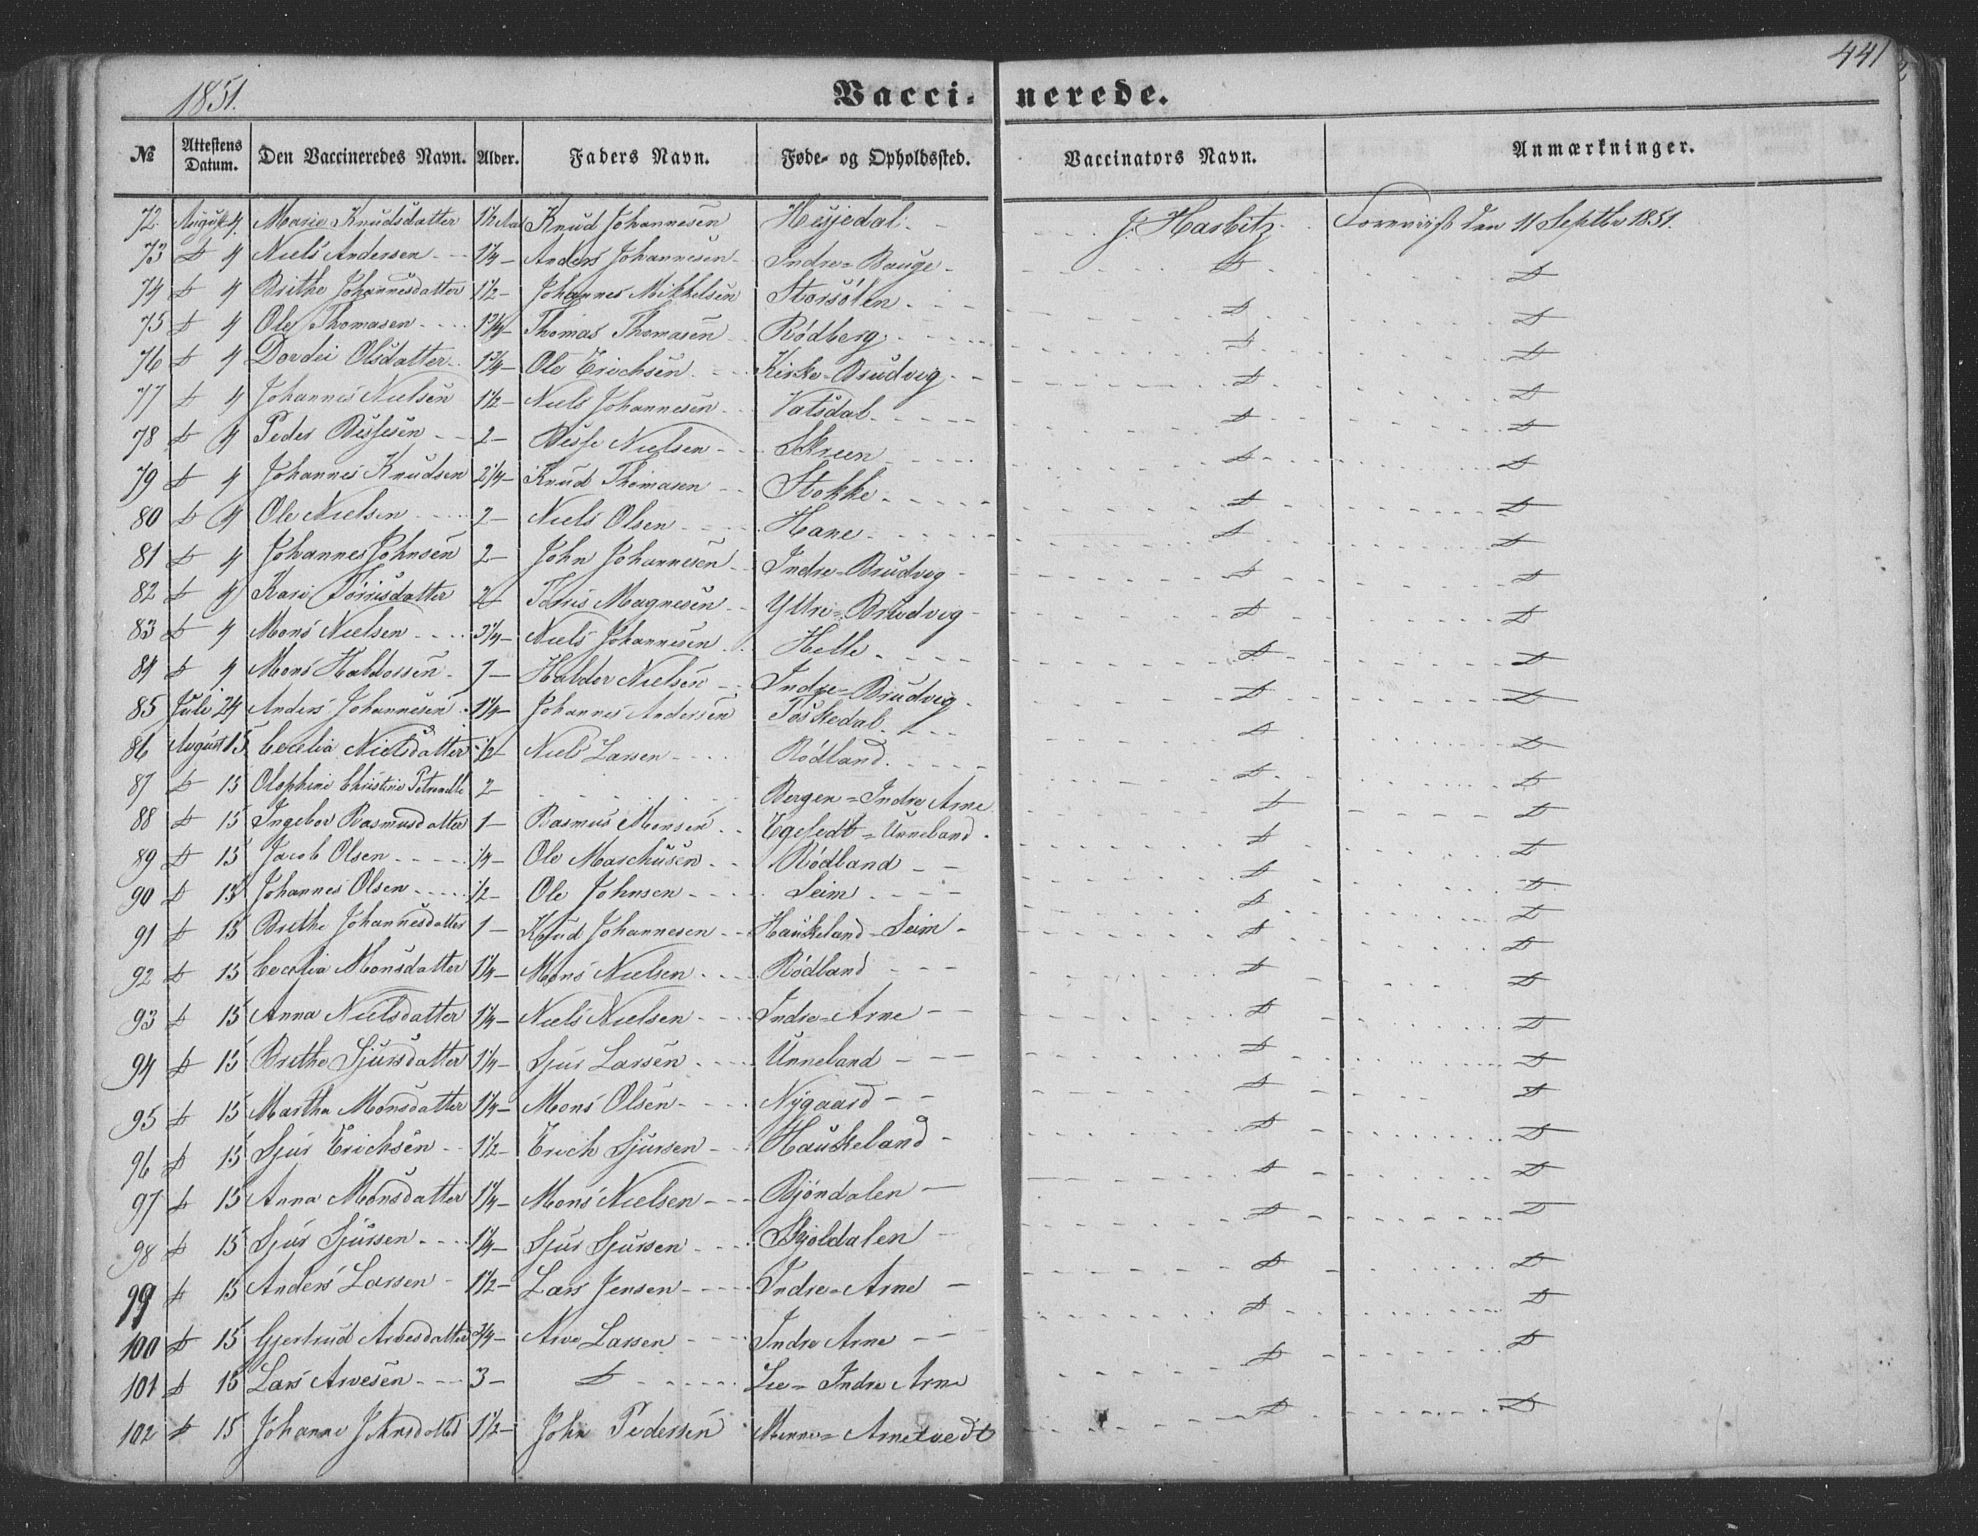 441
1851.
Vacci- nerede.
№ Attestens Datum. Den Vaccineredes Navn. Alder. Faders Navn. Føde- og Opholdssted. Vaccinators Navn. Anmærkninger.
72 August 4. Marie Knudsdatter Knud Johannesen Hesjedal. J. Harbitz. den 11 Septbr 1851.
73 D 4 Niels Andersen 1¼ Anders Johannesen Indre-Bauge D D
74 D 4 Brithe Johannesdatter 1½ Johannes Mikkelsen Storsølen D D
75 D 4 Ole Thomasen 1¾ Thomas Thomasen Rödberg D D
76 D 4 Dordei Olsdatter 1¾ Ole Erichsen Kirke-Brudvig D D
77 D 4 Johannes Nielsen 1½ Niels Johannesen Vatsdal D D
78 D 4 Peder 2 Nielsen Skreen D D
79 D 4 Johannes Knudsen 2¼ Knud Thomasen Stokke D D
80 D 4 Ole Nielsen 2 Niels Olsen Hane D D
81 D 4 Johannes Johnsen 2 John Johannesen Indre-Brudvig D D
82 D 4 Kari Torrisdatter 2 Torris Magnesen Yttre-Brudvig D D
83 D 4 Mons Nielsen 3¼ Niels Johannesen Helle D D
84 D 4 Mons Haldorsen 7 Haldor Nielsen Indre-Brudvig D D
85 Juli 24 Anders Johannesen 1¼ Johannes Andersen Toskedal D D
86 August 15 Cecelia Nielsdatter ½ Niels Larsen Rödland D D
87 D 15 Olophine Christine Petronelle 2 Bergen-Indre Arne D D
88 D 15 Ingebor Rasmusdatter 1 Rasmus Monsen Unneland D D
89 D 15 Jacob Olsen ¼ Ole Marchusen Rödland D D
90 D 15 Johannes Olsen ½ Ole Johnsen Seim D D
91 D 15 Brithe Johannesdatter 1 Knud Johannesen Haukeland-Seim D D
92 D 15 Cecelia Monsdatter 1¼ Mons Nielsen Rödland D D
93 D 15 Anna Nielsdatter 1¼ Niels Nielsen Indre-Arne D D
94 D 15 Brithe Sjursdatter 1¼ Sjur Larsen Unneland D D
95 D 15 Martha Monsdatter 1¼ Mons Olsen Nygaard D D
96 D 15 Sjur Erichsen 1½ Erich Sjursen Haukeland D D
97 D 15 Anna Monsdatter 1¼ Mons Nielsen Bjöndalen D D
98 D 15 Sjur Sjursen 1¼ Sjur Sjursen Skjoldalen D D
99 D 15 Anders Larsen 1½ Lars Jensen Indre-Arne D D
100 D 15 Gjertrud Arvesdatter ¾ Arve Larsen Indre Arne D D
101 D 15 Lars Arvesen 3 D Lie-Indre Arne D D
102 D 15 Johanne Johnsdatter 1½ John Pedersen Arnetvedt D D